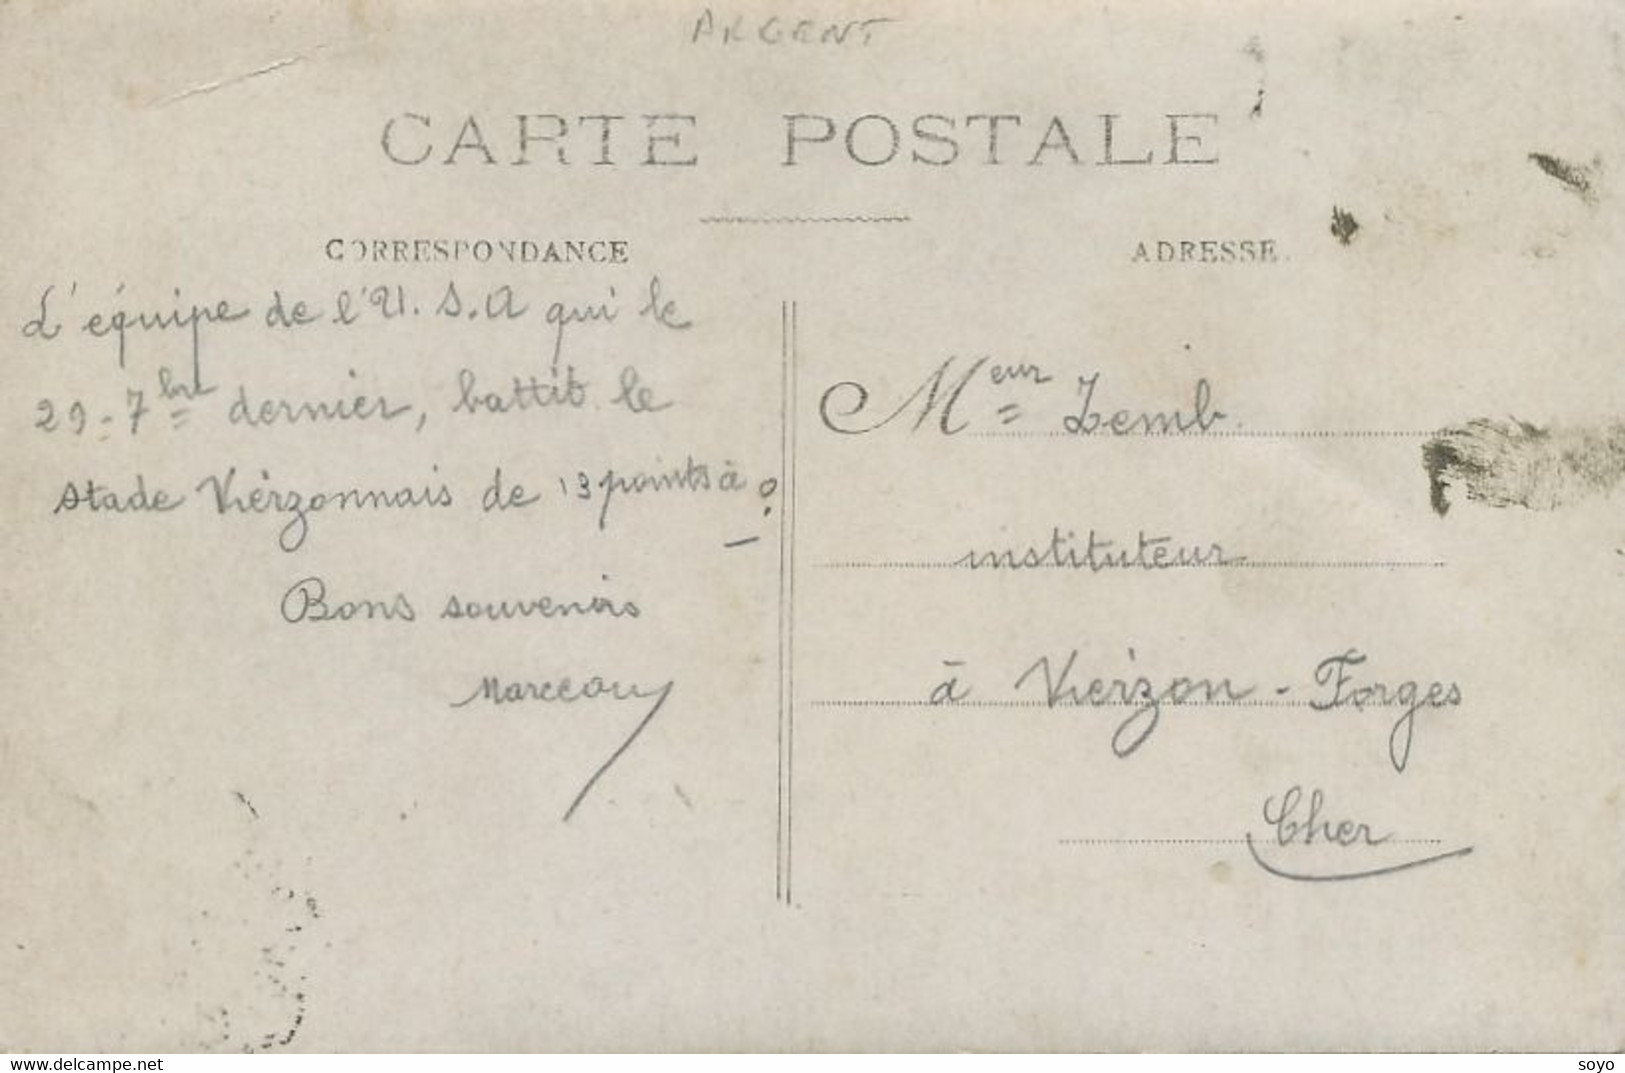 ARGENT
CARTE POSTALE
CORRESPONDANCE
L'équipe de l'U.S.A qui le
29-7bre dernier, battit le
stade Vierzonnais de 13 points à 0
Bons souvenirs
ADRESSE.
Meur Zemb.
instituteur
à Vierzon-Forges
Cher
www.delcampe.net
soyo